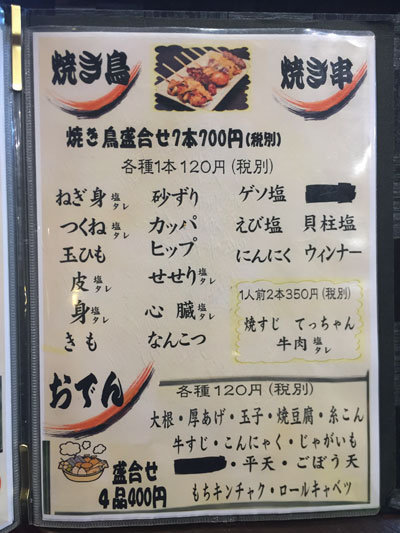 焼き鳥 焼き串
焼き鳥盛合せ7本700円(税別)
各種1本120円(税別)
ねぎ身 塩 タレ 砂ずり ゲソ塩
つくね 塩 タレ カッパ えび塩 貝柱塩
玉ひも ヒップ にんにく ウィンナー
皮 塩 タレ せせり 塩 タレ
身 塩 タレ 心臓 塩 タレ
きも なんこつ
1人前2本350円(税別)
焼すじ てっちゃん
牛肉 塩 タレ
おでん
各種120円(税別)
大根・厚あげ・玉子・焼豆腐・糸こん
牛すじ・こんにゃく・じゃがいも
・平天・ごぼう天
もちキンチャク・ロールキャベツ
盛合せ
4品400円